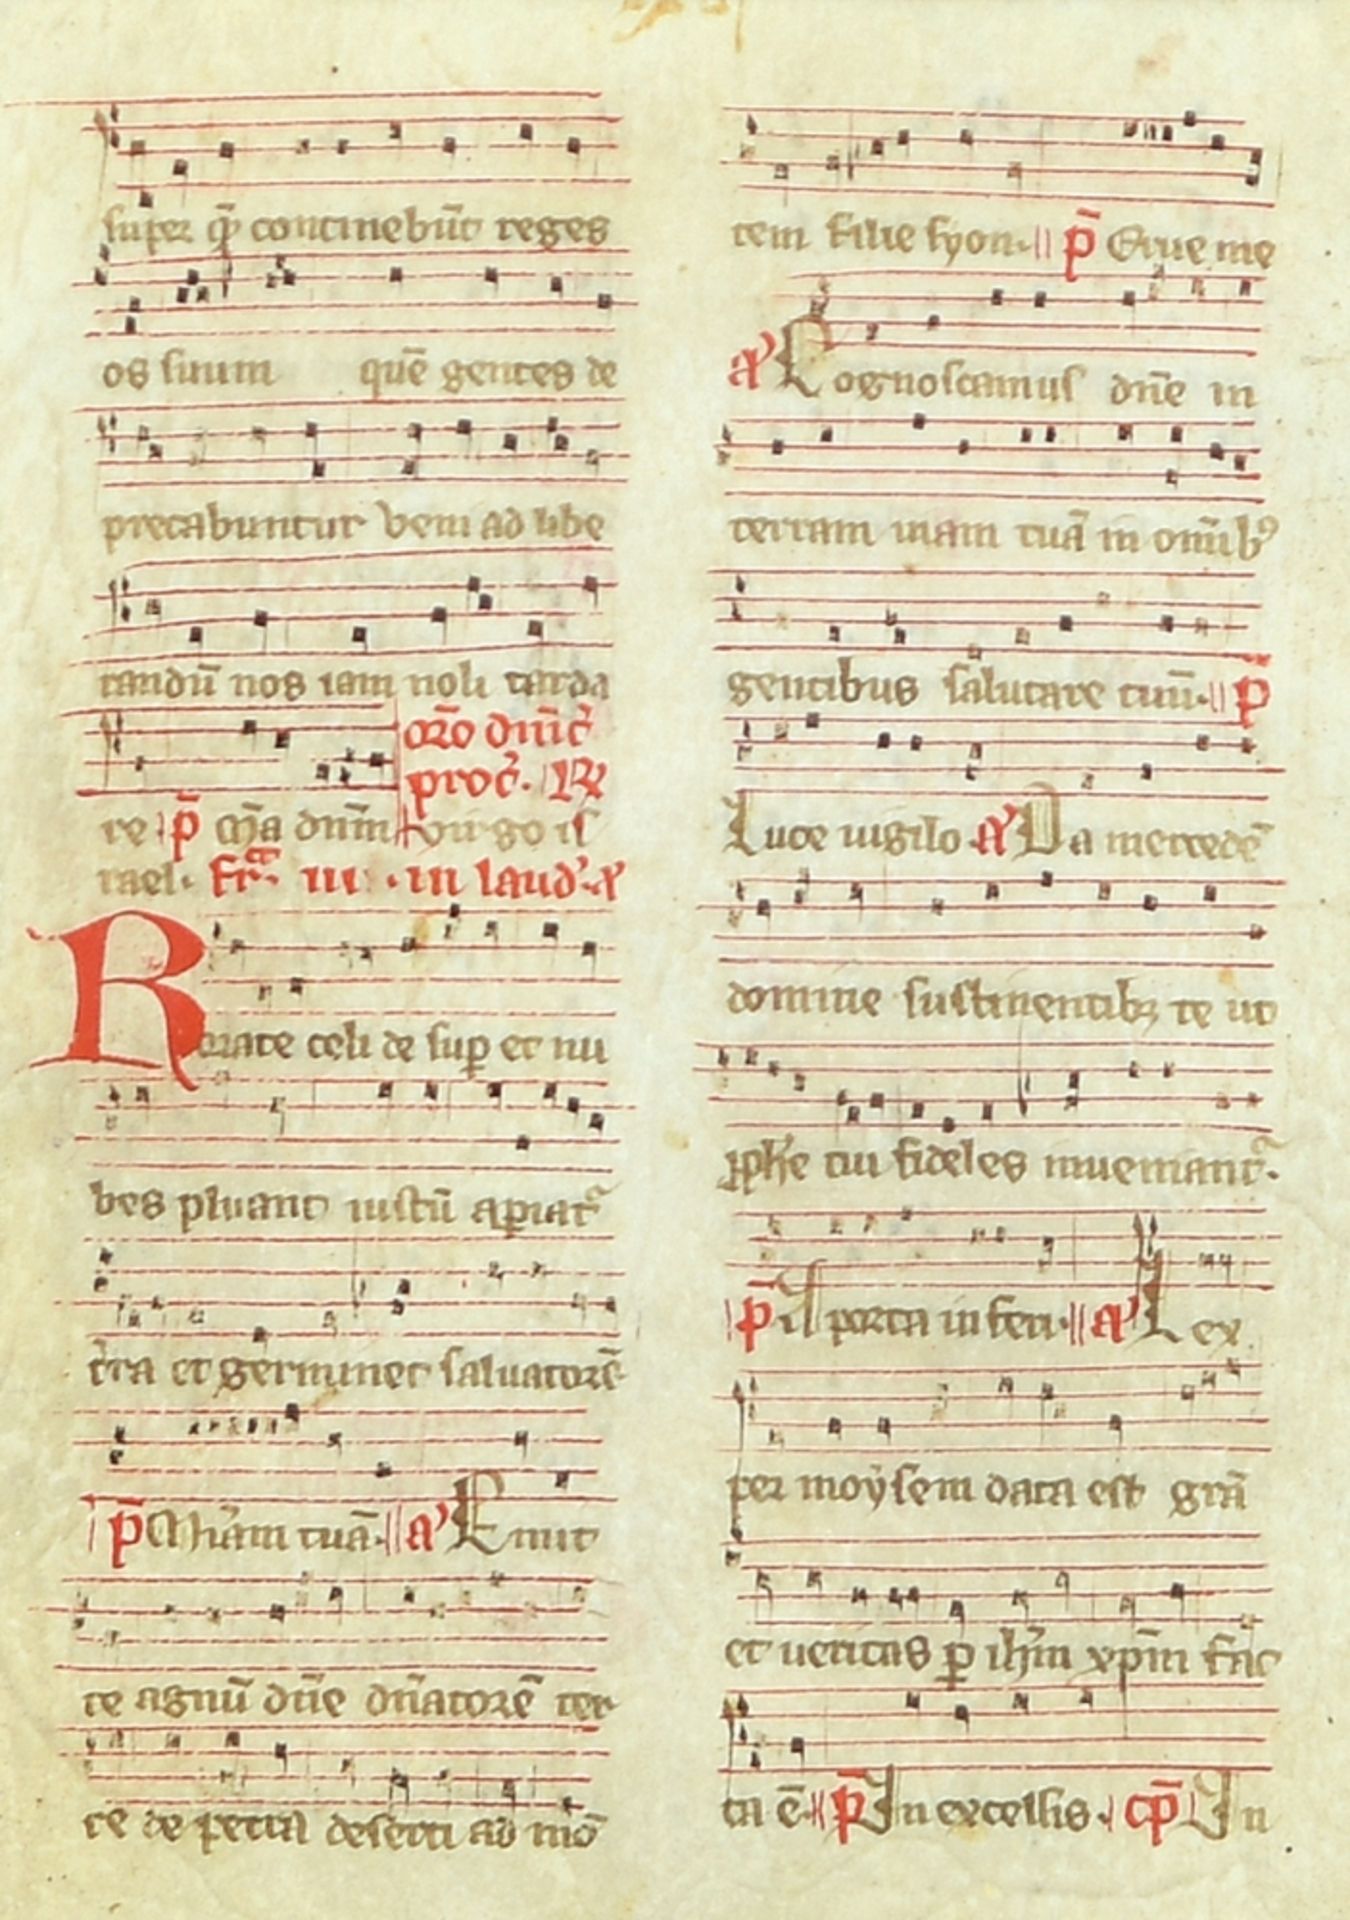 super q̄ʒ continebūt reges
os suum quē gentes de
precabuntur veni ad libe
randū nos iam noli tarda
oro dn̄ic̄
proc̄. R
re p̄ Cōfia dn̄m virgo is
rael. fr̄a iii in laud' a'
Rorate celi de suꝑ et nu
bes pluant iustū aꝑiat᷑
t̓ra et germinet saluatorē
p̄ Mīam tuā. a' Emit
te agnū dn̄e dn̄atorē ter
re de petra deserti ad mō
tem filie syon. p̄ Erue me
a' Cognoscamus dn̄e in
terram uiam tuā in omībꝰ
gentibus salutare tuū. p̄
Luce uigilo a' Da mercedē
domine sustinentibꝫ te ut
ꝓphe tui fideles inueniant᷑.
p̄ A porta inferi. a' Lex
per moysem data est grā
et ueritas ꝑ ih̄m xp̄m fac
ta ē. p̄ In excelsis. cp̄ In